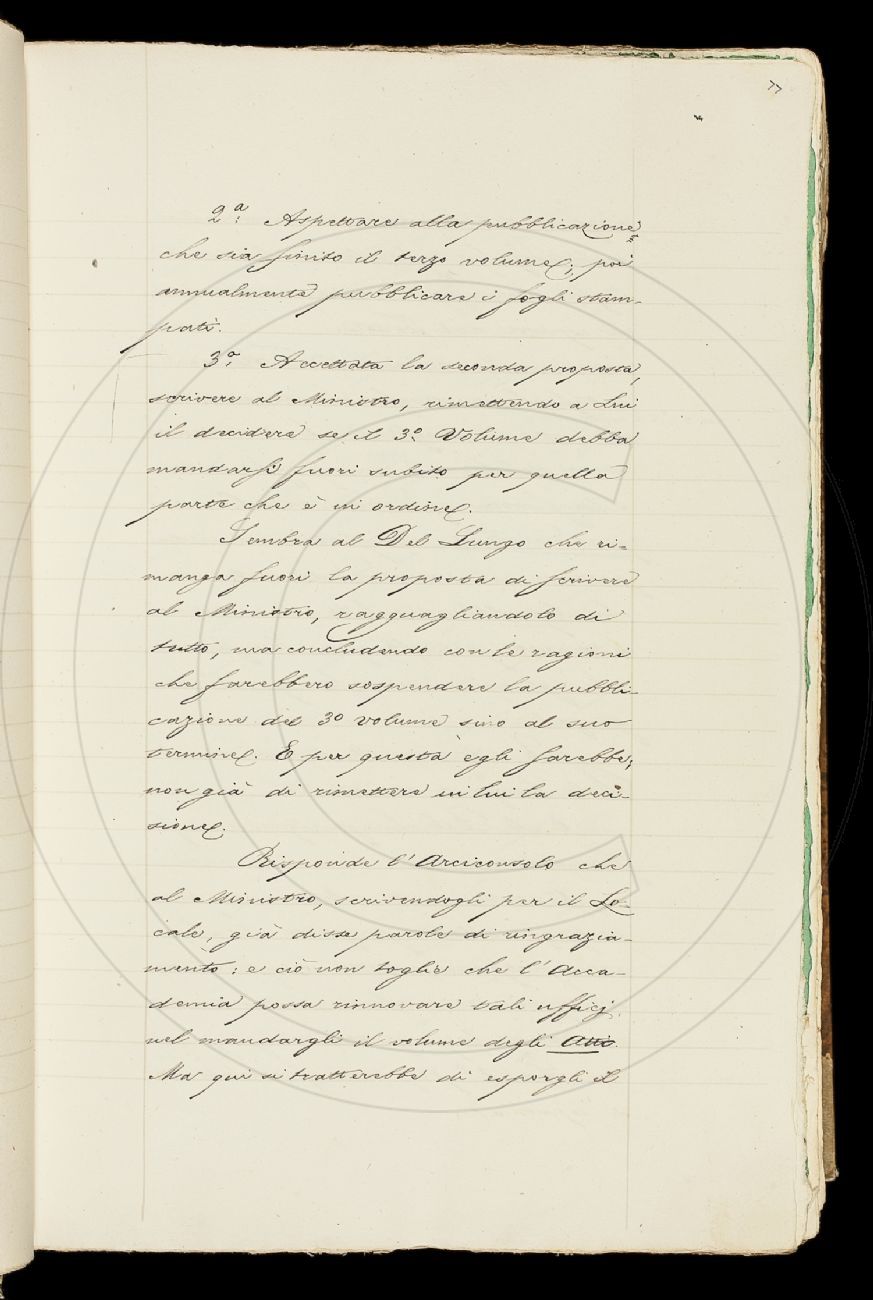 77
2ª: Aspettare alla pubblicazione,
che sia finito il terzo volume; poi
annualmente pubblicare i fogli stam-
pati.
3ª: Accettata la seconda proposta,
scrivere al Ministro, rimettendo a Lui
il decidere se il 3º Volume debba
mandarsi fuori subito per quella
parte che è in ordine.
Sembra al Del Lungo che ri-
manga fuori la proposta di scrivere
al Ministro, ragguagliandolo di
tutto, ma concludendo con le ragioni
che farebbero sospendere la pubbli-
cazione del 3º volume sino al suo
termine. E per questa egli sarebbe;
non già di rimettere in lui la deci-
sione.
Risponde l'Arciconsolo che
al Ministro, scrivendogli per il Lo-
cale, già disse parole di ringrazia-
mento: e ciò non toglie che l'Acca-
demia possa rinnovare tali ufficj
nel mandargli il volume degli Atti.
Ma qui si tratterebbe di esporgli il